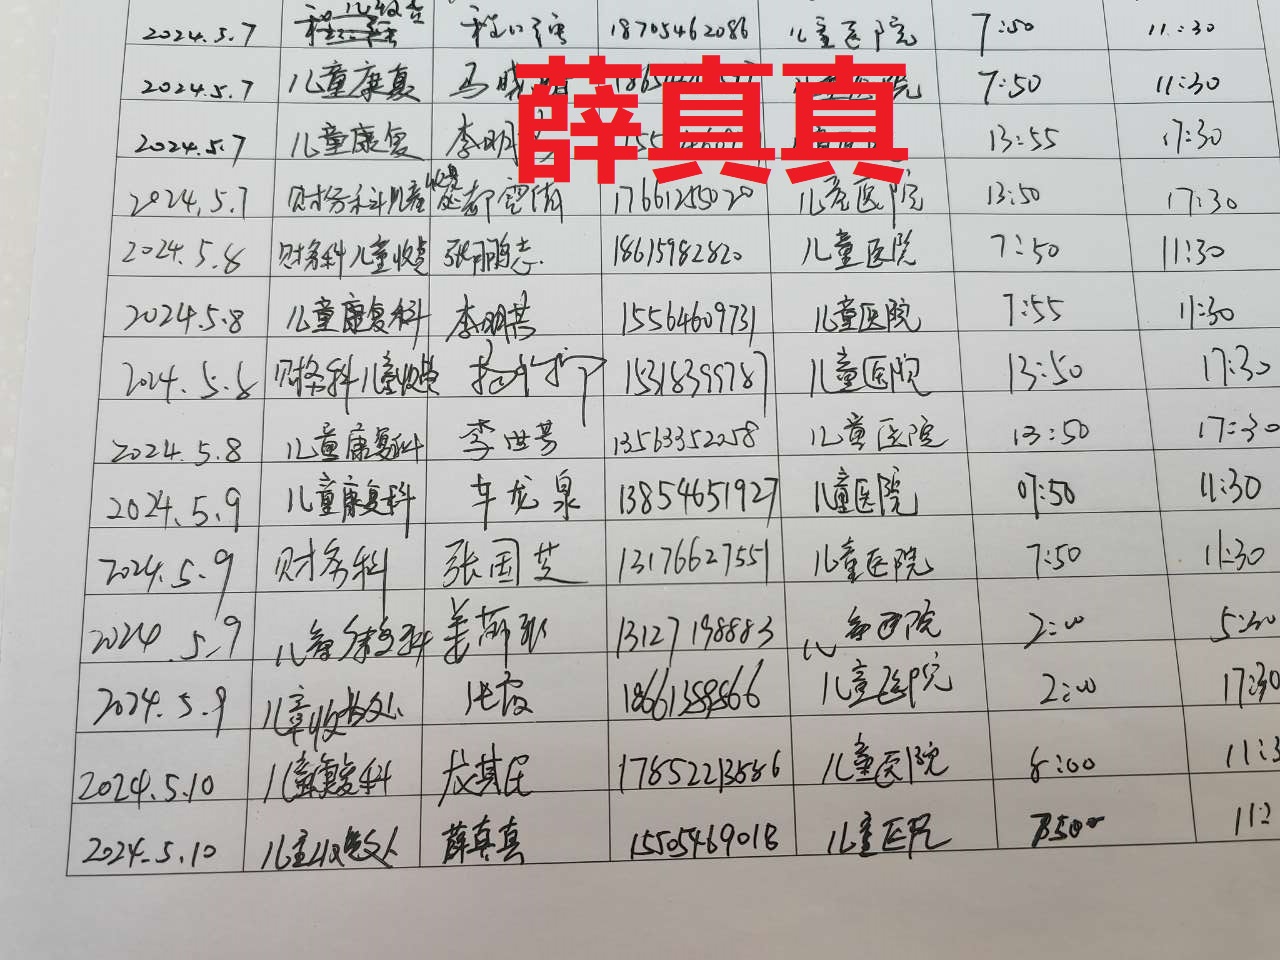 2024.5.7 18705462086 儿童医院 7:50 11:30
薛真真
2024.5.7 儿童康复 马晓 7:50 11:30
2024.5.7 儿童康复 李明 13:55 17:30
2024.5.7 财务科儿童收费 17661255020 儿童医院 13:50 17:30
2024.5.8 财务科儿童收费 张鹏志 18615982820 儿童医院 7:50 11:30
2024.5.8 儿童康复科 李明芸 15564609731 儿童医院 7:55 11:30
2024.5.8 财务科儿童收费 15318399787 儿童医院 13:50 17:30
2024.5.8 儿童康复科 李世芳 13563352258 儿童医院 13:50 17:30
2024.5.9 儿童康复科 车龙泉 13854651927 儿童医院 07:50 11:30
2024.5.9 财务科 张国芝 13176627551 儿童医院 7:50 11:30
2024.5.9 儿童康复科 姜 13127198883 儿童医院 2:00 5:30
2024.5.9 儿童收费处 张霞 18661389866 儿童医院 2:00 17:30
2024.5.10 儿童康复科 17852213686 儿童医院 8:00 11:3
2024.5.10 儿童收费处 薛真真 15505469018 儿童医院 7:50 11: